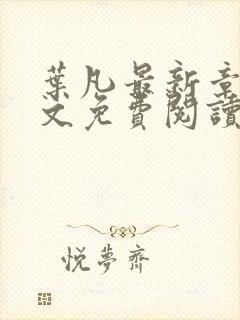 葉凡最新章
文免費閱讀
悅夢齋